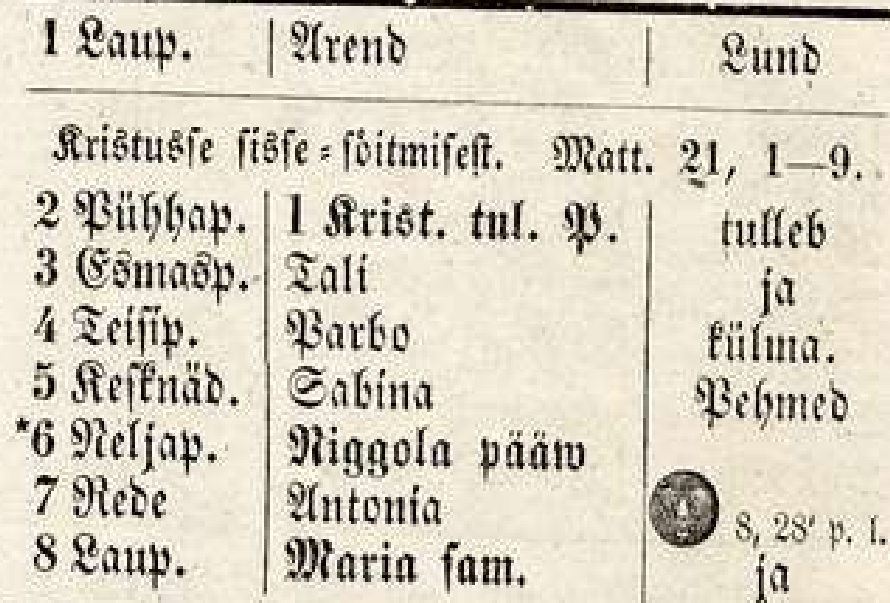 1 Laup. Arend Lund
Kristusse sisse-sõitmisest. Matt. 21, 1—9.
2 Pühhap. 1 Krist. tul. P. tulleb
3 Esmasp. Tali ja
4 Teisip. Parbo külma.
5 Kesknäd. Sabina Pehmed
*6 Neljap. Niggola pääw
7 Rede Antonia 8, 28' p. l.
8 Laup. Maria sam. ja